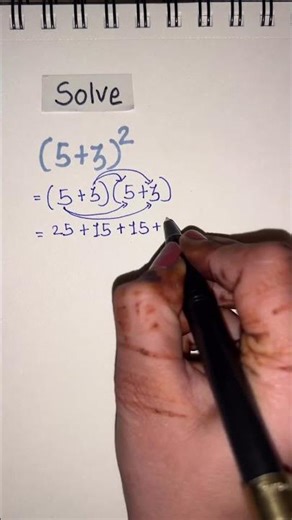 Solve
(5+3)²
=(5+3)(5+3)
= 25+15+15+